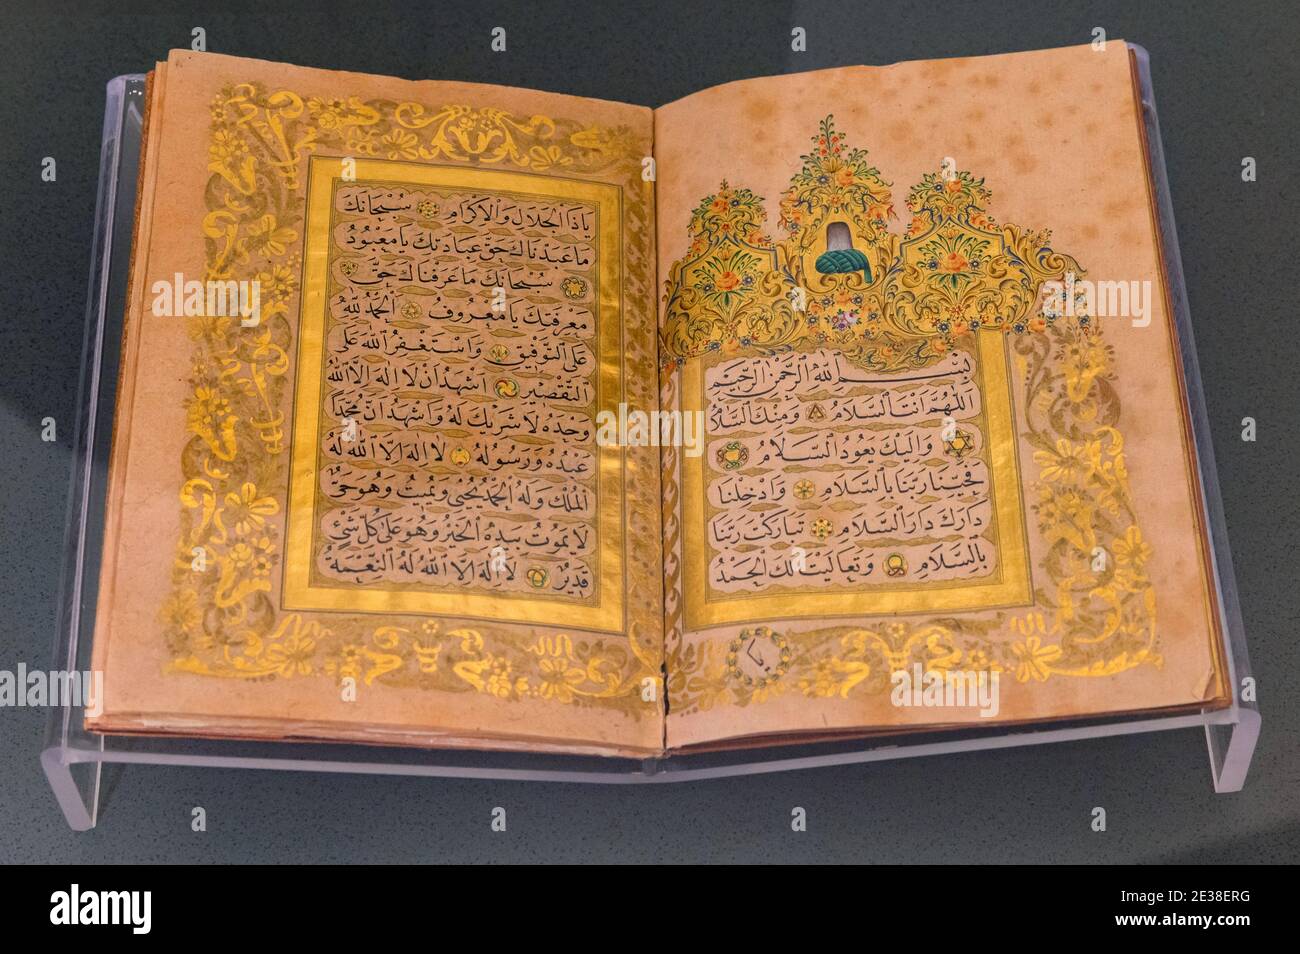 بِسْمِ اللهِ الرَّحْمٰنِ الرَّحِيمِ
اَللّٰهُمَّ اَنْتَ السَّلَامُ وَمِنْكَ السَّلَامُ
وَاِلَيْكَ يَعُودُ السَّلَامُ
فَحَيِّنَا رَبَّنَا بِالسَّلَامِ وَاَدْخِلْنَا
دَارَكَ دَارَ السَّلَامِ تَبَارَكْتَ رَبَّنَا
بِالسَّلَامِ وَتَعَالَيْتَ لَكَ الْحَمْدُ
يَا
يَاذَا الْجَلَالِ وَالْاِكْرَامِ سُبْحَانَكَ
مَا عَبَدْنَاكَ حَقَّ عِبَادَتِكَ يَا مَعْبُودُ
سُبْحَانَكَ مَا عَرَفْنَاكَ حَقَّ
مَعْرِفَتِكَ يَا مَعْرُوفُ اَلْحَمْدُ لِلّٰهِ
عَلَى التَّوْفِيقِ وَاَسْتَغْفِرُ اللهَ عَلَى
التَّقْصِيرِ اَشْهَدُ اَنْ لَا اِلٰهَ اِلَّا اللهُ
وَحْدَهُ لَا شَرِيكَ لَهُ وَاَشْهَدُ اَنَّ مُحَمَّدًا
عَبْدُهُ وَرَسُولُهُ لَا اِلٰهَ اِلَّا اللهُ لَهُ
الْمُلْكُ وَلَهُ الْحَمْدُ يُحْيِي وَيُمِيتُ وَهُوَ حَيٌّ
لَا يَمُوتُ بِيَدِهِ الْخَيْرُ وَهُوَ عَلَى كُلِّ شَيْءٍ
قَدِيرٌ لَا اِلٰهَ اِلَّا اللهُ لَهُ النِّعْمَةُ
alamy
alamy
Image ID: 2E38ERG
www.alamy.com